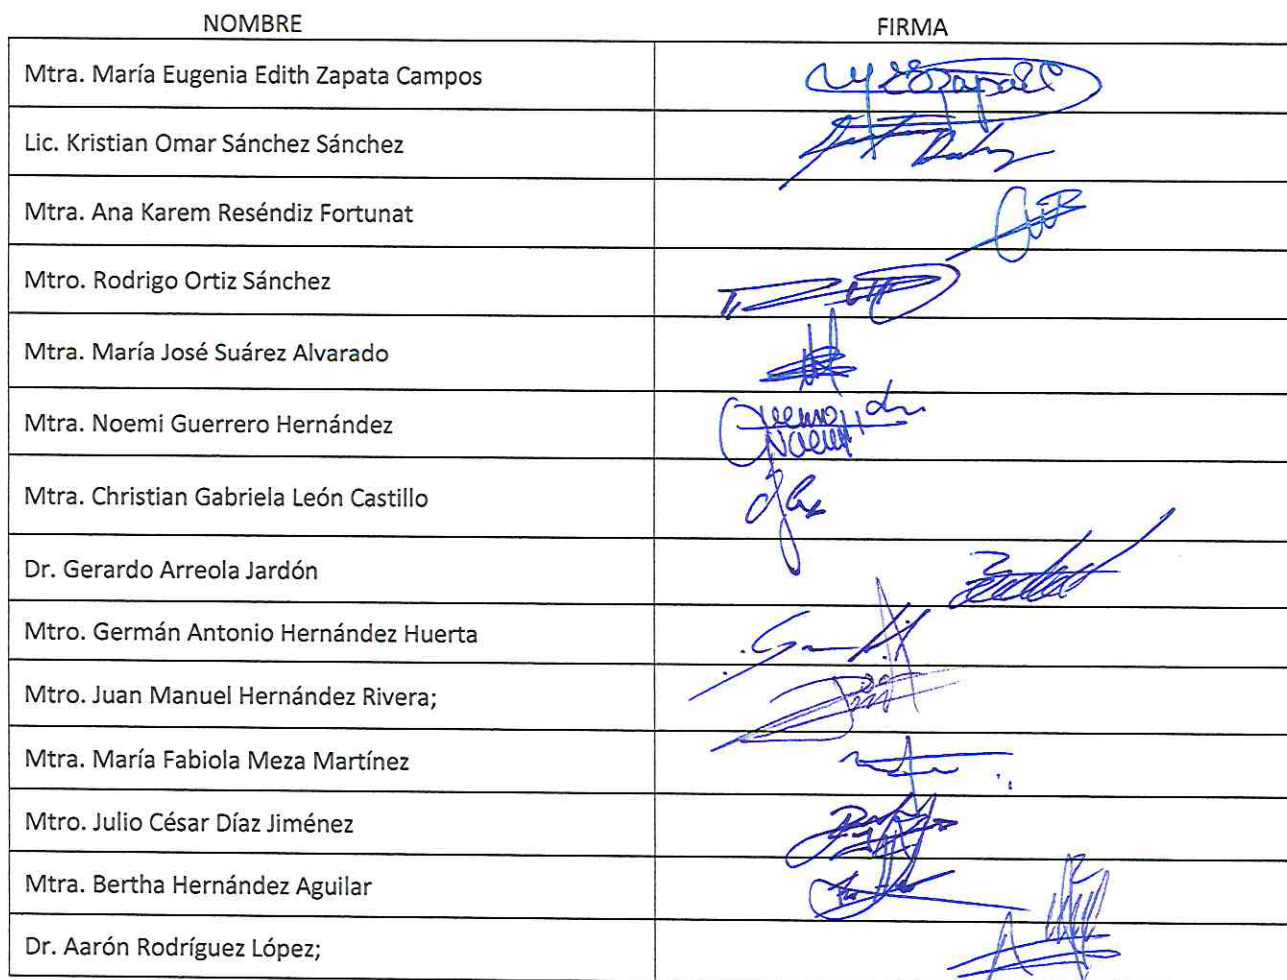 NOMBRE FIRMA
Mtra. María Eugenia Edith Zapata Campos
Lic. Kristian Omar Sánchez Sánchez
Mtra. Ana Karem Reséndiz Fortunat
Mtro. Rodrigo Ortiz Sánchez
Mtra. María José Suárez Alvarado
Mtra. Noemi Guerrero Hernández
Mtra. Christian Gabriela León Castillo
Dr. Gerardo Arreola Jardón
Mtro. Germán Antonio Hernández Huerta
Mtro. Juan Manuel Hernández Rivera;
Mtra. María Fabiola Meza Martínez
Mtro. Julio César Díaz Jiménez
Mtra. Bertha Hernández Aguilar
Dr. Aarón Rodríguez López;